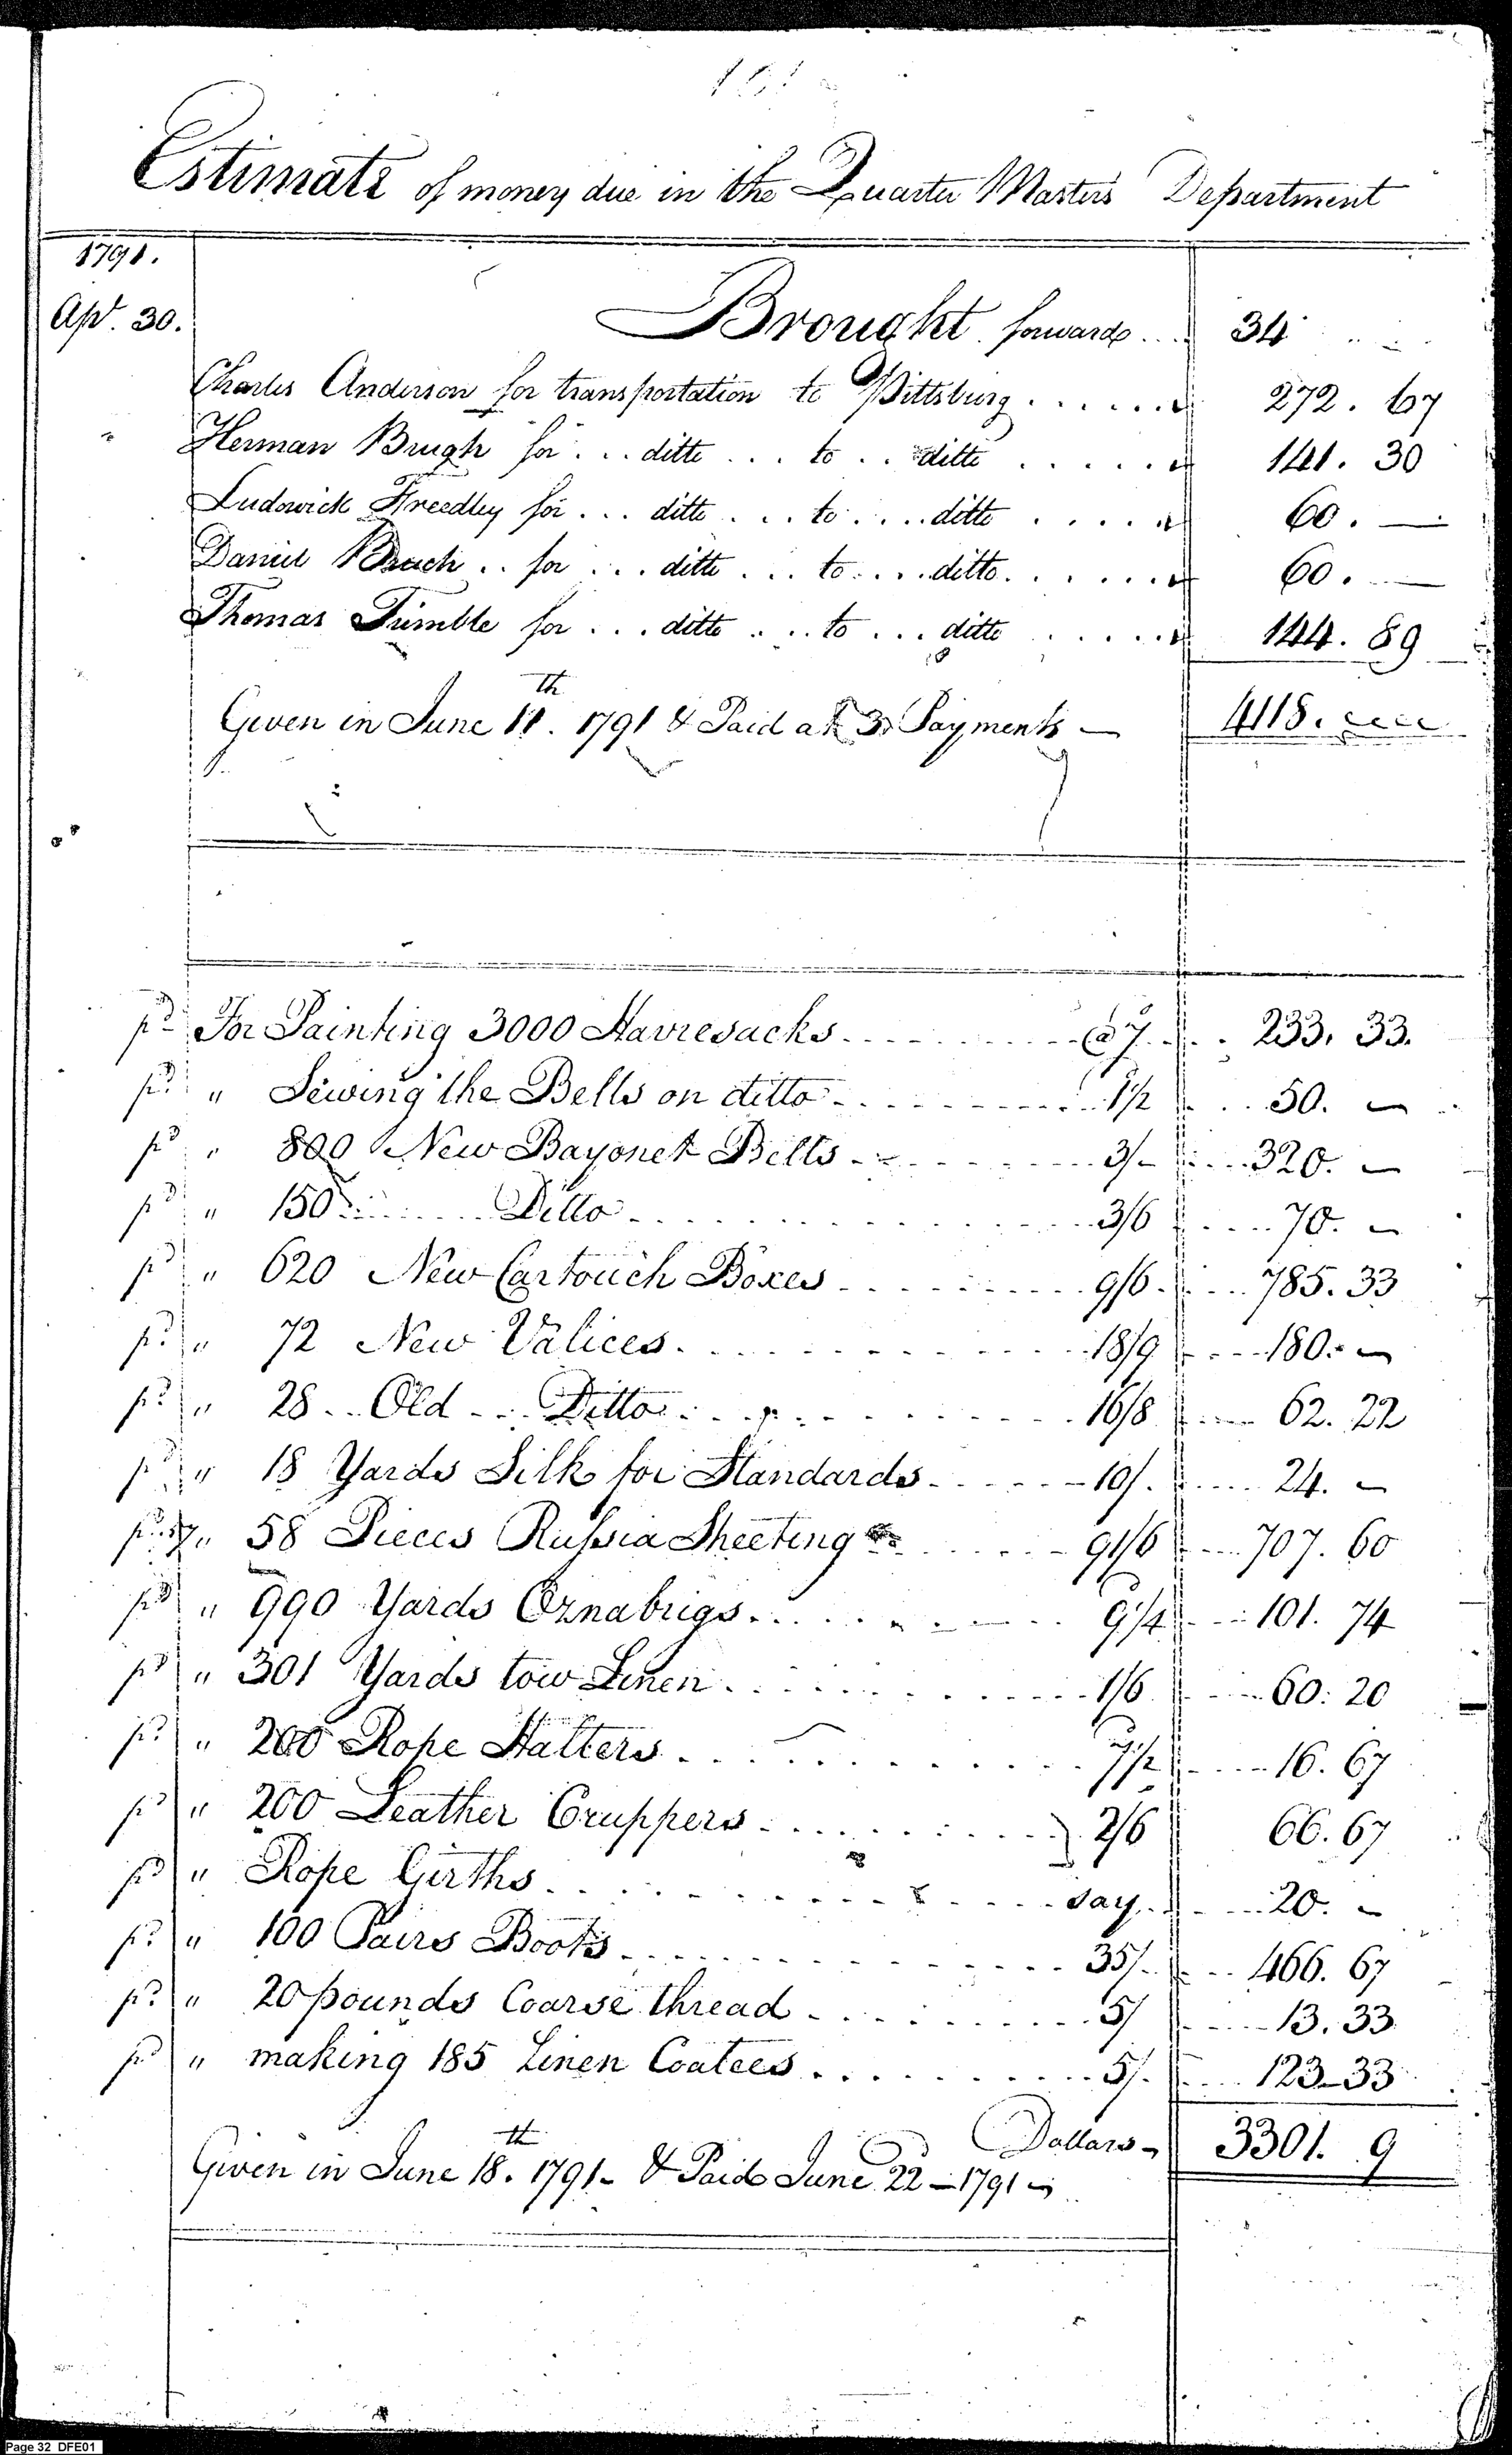 Estimate of money due in the Quarter Masters Department
1791.
Apl. 30. Brought forward .. 34
Charles Anderson for transportation to Pittsburg ...... 272. 67
Herman Brugh for ... ditto ... to .. ditto ...... 141. 30
Ludowick Freedley for ... ditto ... to .... ditto ..... 60. —
Daniel .. for ... ditto ... to .... ditto ...... 60. —
Thomas Tumble for ... ditto .... to ... ditto ..... 144. 89
Given in June 11th. 1791 & Paid at 3 Payments — 4118.
pd For Painting 3000 Havresacks .......... @ 7 .. 233. 33.
pd " Sewing the Belts on ditto .......... 1/2 ... 50. —
pd " 800 New Bayonet Belts .......... 3/- .... 320. —
pd " 150 ....... Ditto .......... 3/6 .... 70. —
pd " 620 New Cartouch Boxes .......... 9/6 .... 785. 33
pd " 72 New Valices .......... 18/9 .... 180. —
pd " 28 .. Old ... Ditto .......... 16/8 .... 62. 22
pd " 18 Yards Silk for Standards ...... 10/. .... 24. —
pd " 58 Pieces Russia Sheeting ...... 91/6 .... 707. 60
pd " 990 Yards Oznabrigs .......... 9 1/4 .... 101. 74
pd " 301 Yards tow Linen .......... 1/6 .... 60. 20
pd " 200 Rope Halters .......... 7 1/2 .... 16. 67
pd " 200 Leather Cruppers .......... } 2/6 66. 67
pd " Rope Girths .......... say .... 20. —
pd " 100 Pairs Boots .......... 35/. ... 466. 67
pd " 20 pounds Coarse thread .......... 5/ .... 13. 33
pd " making 185 Linen Coatees .......... 5/. .... 123-33
Dollars - 3301. 9
Given in June 18th. 1791 - & Paid June 22 - 1791 -
Page 32 DFE01